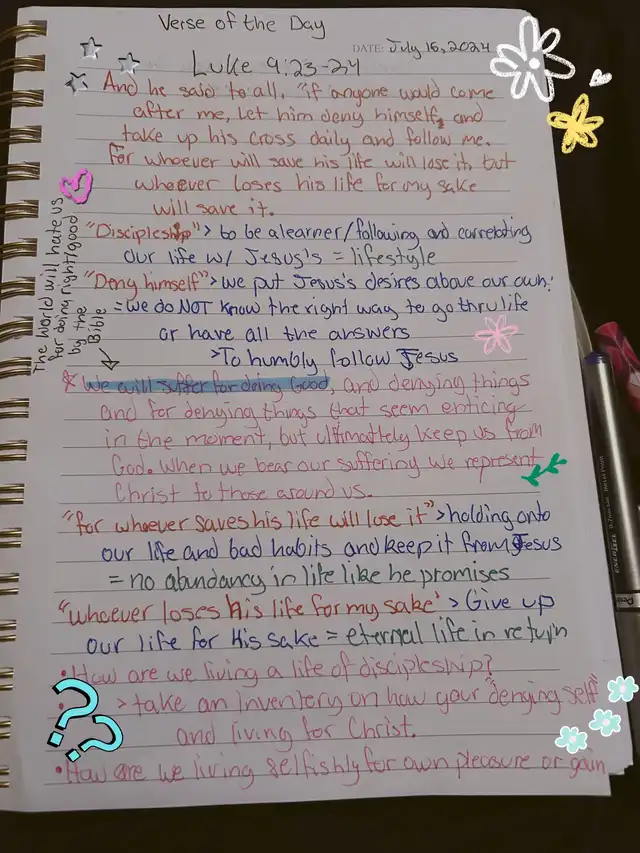 Verse of the Day
DATE: July 16, 2024
Luke 9:23-24
And he said to all, "if anyone would come
after me, let him deny himself, and
take up his cross daily and follow me.
For whoever will save his life will lose it, but
whoever loses his life for my sake
will save it.
"Discipleship" > to be a learner/following and correlating
our life w/ Jesus's = lifestyle
"Deny himself" > we put Jesus's desires above our own.
= we do NOT know the right way to go thru life
or have all the answers
> To humbly follow Jesus
The world will hate us
for doing right/good
by the
Bible
We will suffer for doing Good, and denying things
and for denying things that seem enticing
in the moment, but ultimattely keep us from
God. When we bear our suffering we represent
Christ to those around us.
"for whoever saves his life will lose it" > holding onto
our life and bad habits and keep it from Jesus
= no abundancy in life like he promises
"whoever loses his life for my sake' > Give up
our life for His sake = eternal life in return
• How are we living a life of discipleship?
> take an inventory on how your "denying self"
and living for Christ.
• How are we living selfishly for own pleasure or gain
??